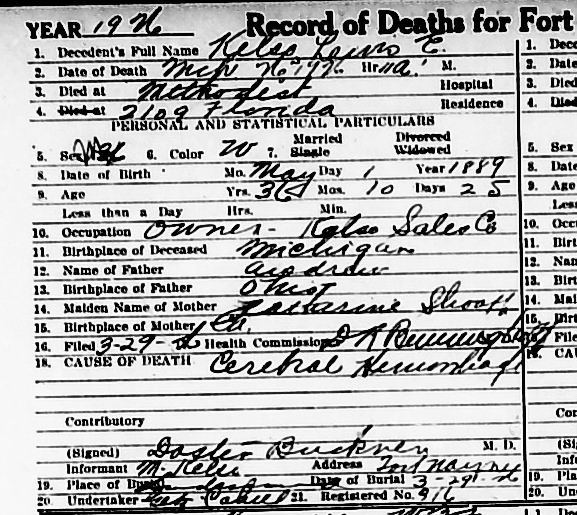 YEAR 1926 Record of Deaths for Fort
1. Decedent's Full Name Kelso E.
2. Date of Death Mch 26 1926 Hr. 11 a. M.
3. Died at Methodist Hospital
4. Died at 2109 Florida Residence
PERSONAL AND STATISTICAL PARTICULARS
5. Sex M 6. Color W 7. Married Single Divorced Widowed
8. Date of Birth Mo. May Day 1 Year 1889
9. Age Yrs. 36 Mos. 10 Days 25
Less than a Day Hrs. Min.
10. Occupation Owner - Kelso Sales Co
11. Birthplace of Deceased Michigan
12. Name of Father Andrew
13. Birthplace of Father Ohio
14. Maiden Name of Mother Katharine
15. Birthplace of Mother
16. Filed 3-29-26 Health Commissioner
18. CAUSE OF DEATH Cerebral Hemorrhage
Contributory
(Signed) Buckner M. D.
Informant M. Kelso Address Fort Wayne
19. Place of Burial Date of Burial 3-29-26
20. Undertaker 21. Registered No. 916
1. Dece
2. Date
3. Died
4. Died
5. Sex
8. Date
9. Age
Less
10. Occ
11. Birt
12. Nan
13. Birt
14. Mai
15. Birt
16. File
18. CAU
Con
(Si
Info
19. Plac
20. Und